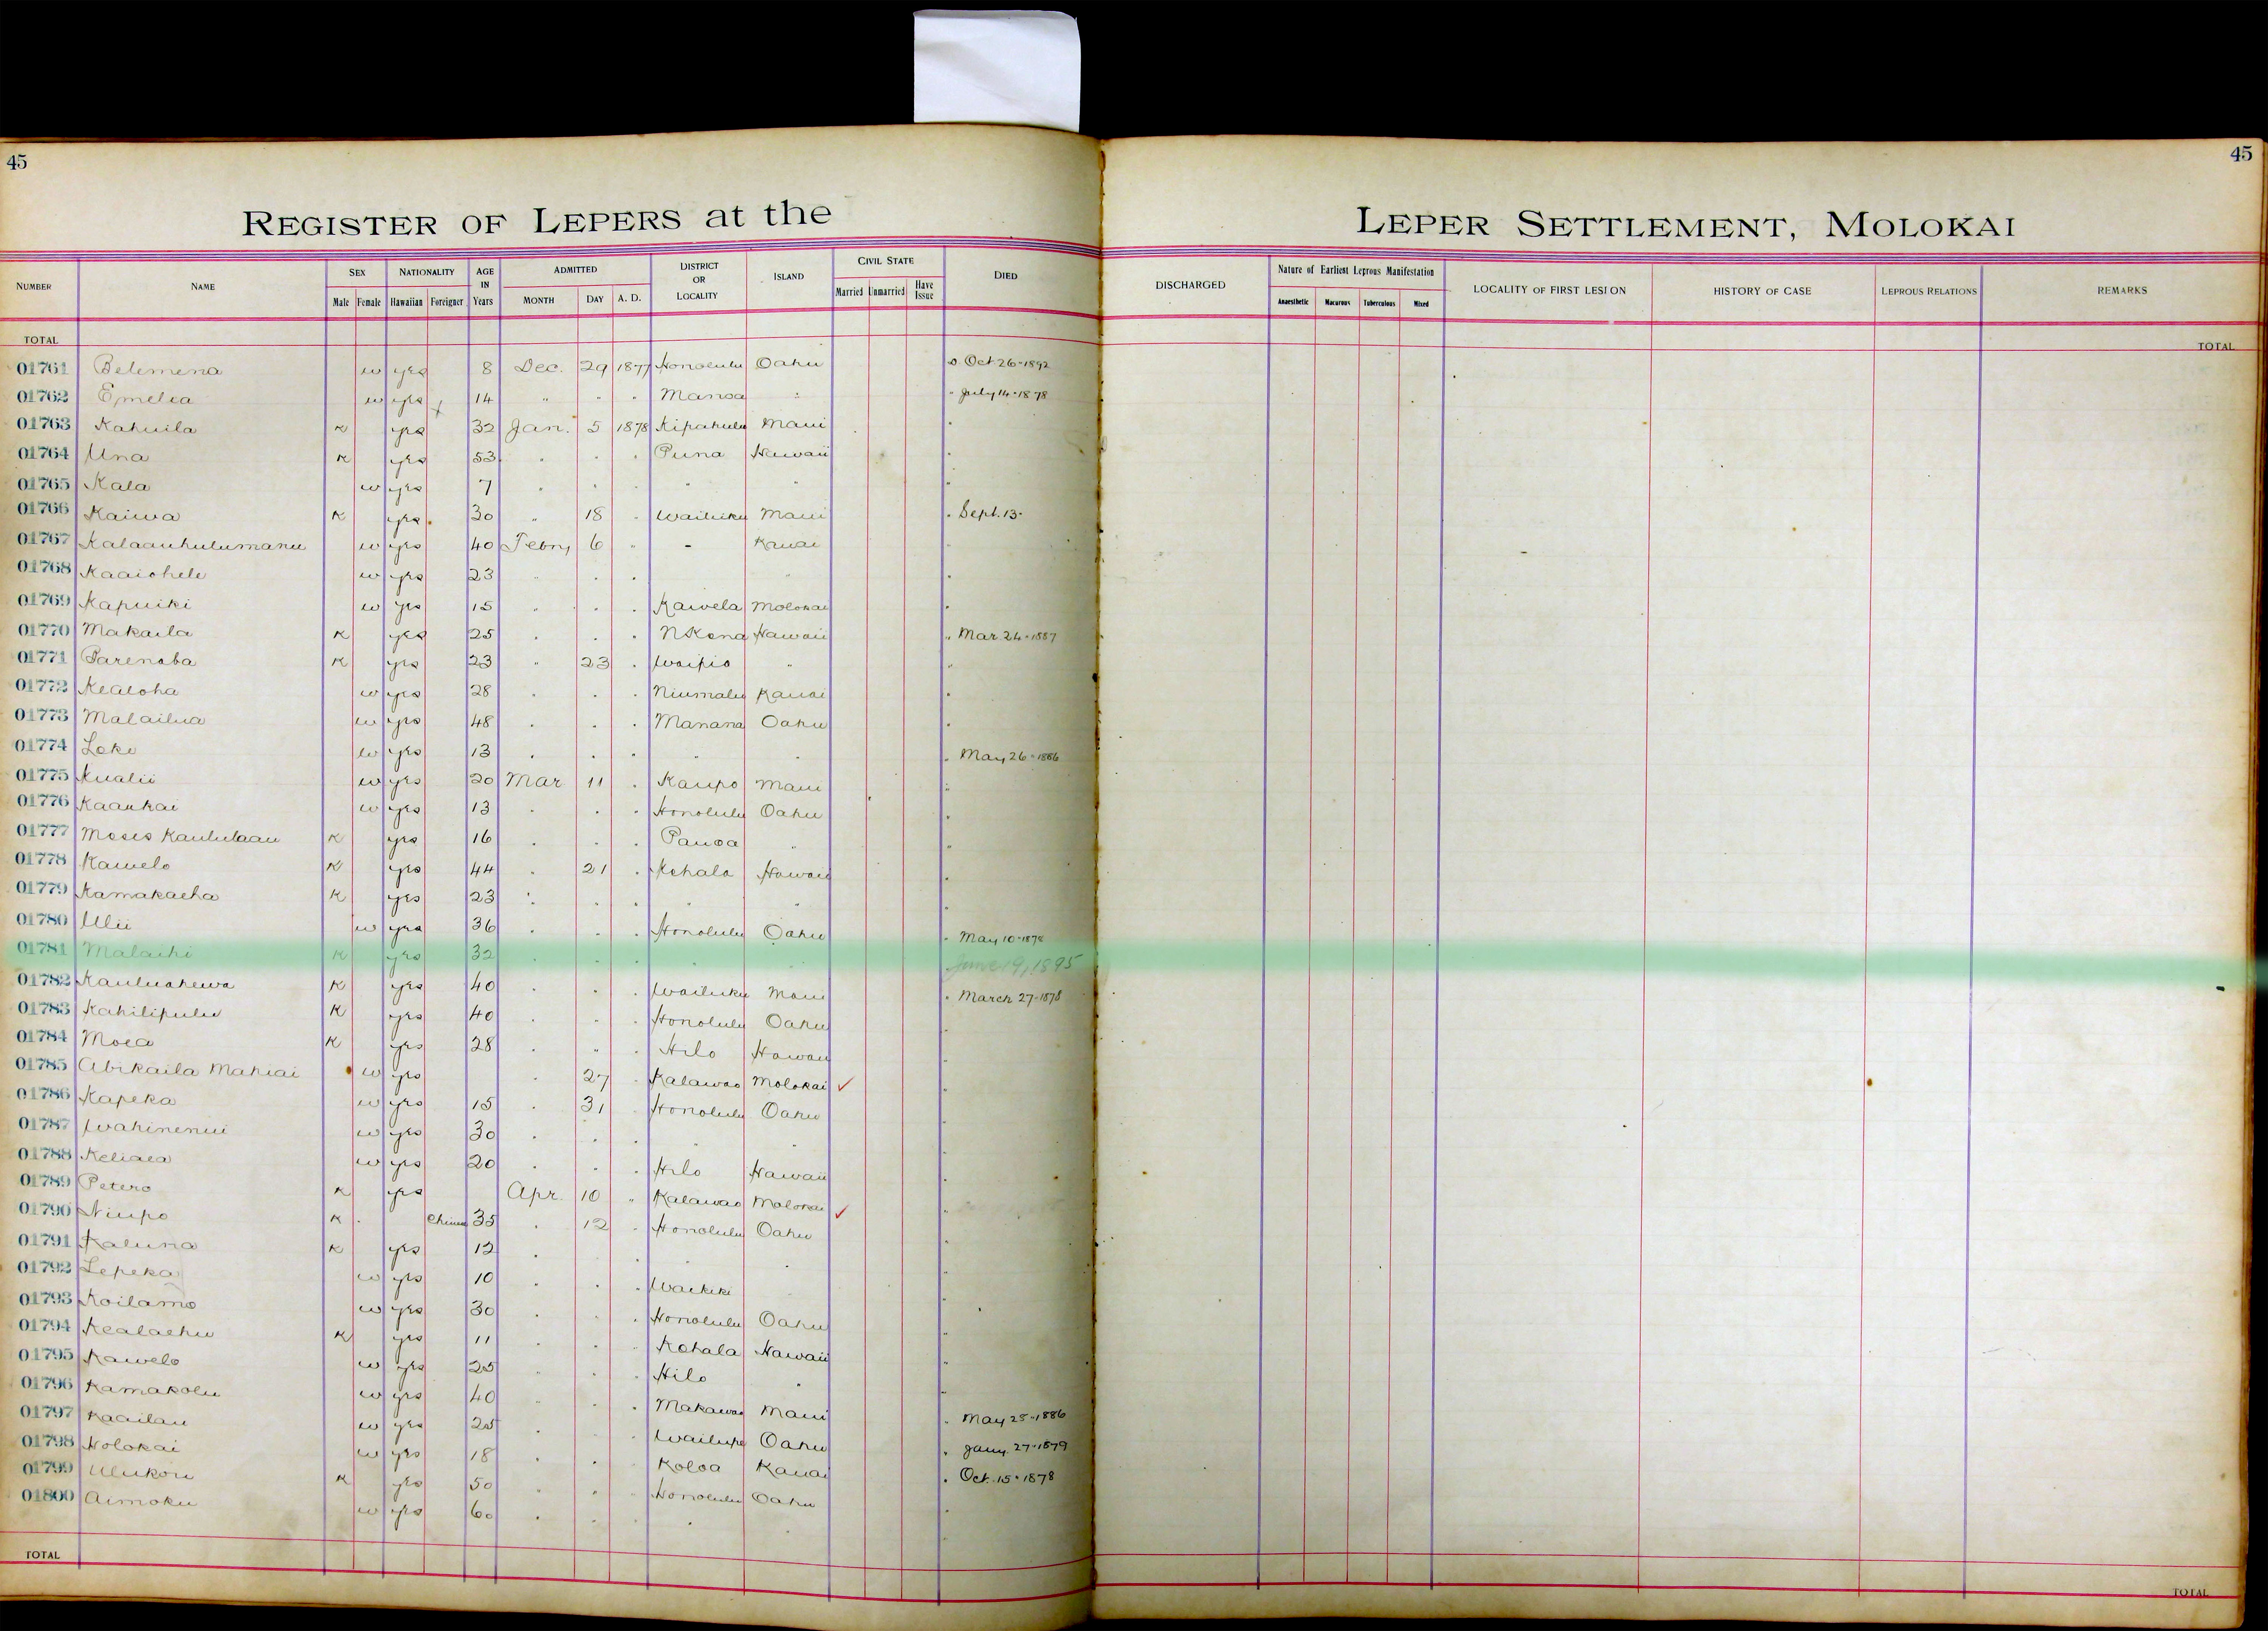 45
45
REGISTER OF LEPERS at the LEPER SETTLEMENT, MOLOKAI
NUMBER NAME SEX Male Female NATIONALITY Hawaiian Foreigner AGE IN Years ADMITTED MONTH DAY A. D. DISTRICT OR LOCALITY ISLAND CIVIL STATE Married Unmarried Have Issue DIED DISCHARGED Nature of Earliest Leprous Manifestation Anaesthetic Macurous Tuberculous Mixed LOCALITY OF FIRST LESION HISTORY OF CASE LEPROUS RELATIONS REMARKS
TOTAL TOTAL
01761 Belemena w yes 8 Dec. 29 1877 Honolulu Oahu D. Oct 26-1892
01762 Emelia w yes 14 " " " Manoa " " July 14-1878
01763 Kahuila K yes 32 Jan. 5 1878 Kipahulu Maui "
01764 Una K yes 53 " " " Puna Hawaii "
01765 Kala w yes 7 " " " " " "
01766 Kaiwa K yes 30 " 18 " Wailuku Maui " Sept. 13-
01767 Kalaauhulumanu w yes 40 Febry 6 " - Kauai "
01768 Kaaiohele w yes 23 " " " " "
01769 Kapuiki w yes 15 " " " Kawela Molokai "
01770 Makaila K yes 25 " " " N Kona Hawaii " Mar 24-1887
01771 Parenaba K yes 23 " 23 " Waipio " "
01772 Kealoha w yes 28 " " " Niumalu Kauai "
01773 Malailua w yes 48 " " " Manana Oahu "
01774 Loke w yes 13 " " " " " " May 26-1886
01775 Kualii w yes 20 Mar 11 " Kaupo Maui "
01776 Kaaukai w yes 13 " " " Honolulu Oahu "
01777 Moses Kaululaau K yes 16 " " " Pauoa " "
01778 Kawelo K yes 44 " 21 " Kohala Hawaii "
01779 Kamakaeha K yes 23 " " " " " "
01780 Ulii w yes 36 " " " Honolulu Oahu " May 10-1878
01781 Malaihi K yes 32 " " " " " June 19, 1895
01782 Kauluahewa K yes 40 " " " Wailuku Maui " March 27-1878
01783 Kahilipulu K yes 40 " " " Honolulu Oahu "
01784 Moea K yes 28 " " " Hilo Hawaii "
01785 Abikaila Mahiai w yes " 27 " Kalawao Molokai ✓ "
01786 Kapeka w yes 15 " 31 " Honolulu Oahu "
01787 Wahinenui w yes 30 " " " " " "
01788 Keliaea w yes 20 " " " Hilo Hawaii "
01789 Petero K yes Apr. 10 " Kalawao Molokai ✓ "
01790 Niupo K Chinese 35 " 12 " Honolulu Oahu "
01791 Kaluna K yes 12 " " " " " "
01792 Lepeka w yes 10 " " " Waikiki " "
01793 Koilamo w yes 30 " " " Honolulu Oahu "
01794 Kealaehu K yes 11 " " " Kohala Hawaii "
01795 Kawelo w yes 25 " " " Hilo " "
01796 Kamakolu w yes 40 " " " Makawao Maui " May 25-1886
01797 Kaailau w yes 25 " " " Wailupe Oahu " Jany. 27-1879
01798 Holokai w yes 18 " " " Koloa Kauai " Oct. 15-1878
01799 Ulukou K yes 50 " " " Honolulu Oahu "
01800 Aimoku w yes 60 " " " " " "
TOTAL TOTAL